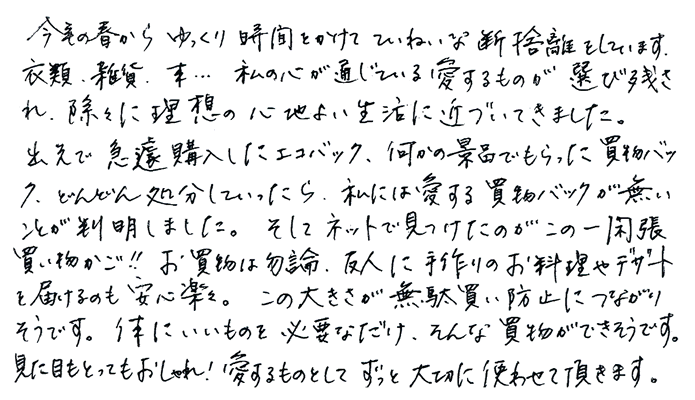 今年の春から ゆっくり 時間をかけて ていねいな 断捨離をしています.
衣類、雑貨、本… 私の心が通じている愛するものが 選び残さ
れ、除々に理想の心地よい生活に近づいてきました。
出先で急遽購入したエコバック、何かの景品でもらった買物バッ
ク、どんどん処分していったら、私には愛する買物バックが無い
ことが判明しました。 そしてネットで見つけたのがこの一閑張
買い物かご!! お買物は勿論、友人に手作りのお料理やデザート
を届けるのも 安心楽々。 この大きさが 無駄買い防止につながり
そうです。体にいいものを必要なだけ、そんな買物ができそうです。
見た目もとってもおしゃれ! 愛するものとして ずっと大切に使わせて頂きます。